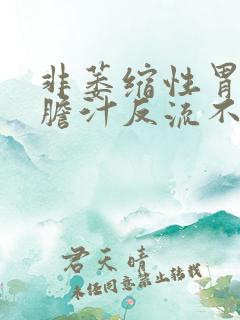 非萎缩性胃
膽汁反流不
君天晴
未经同意禁止转载